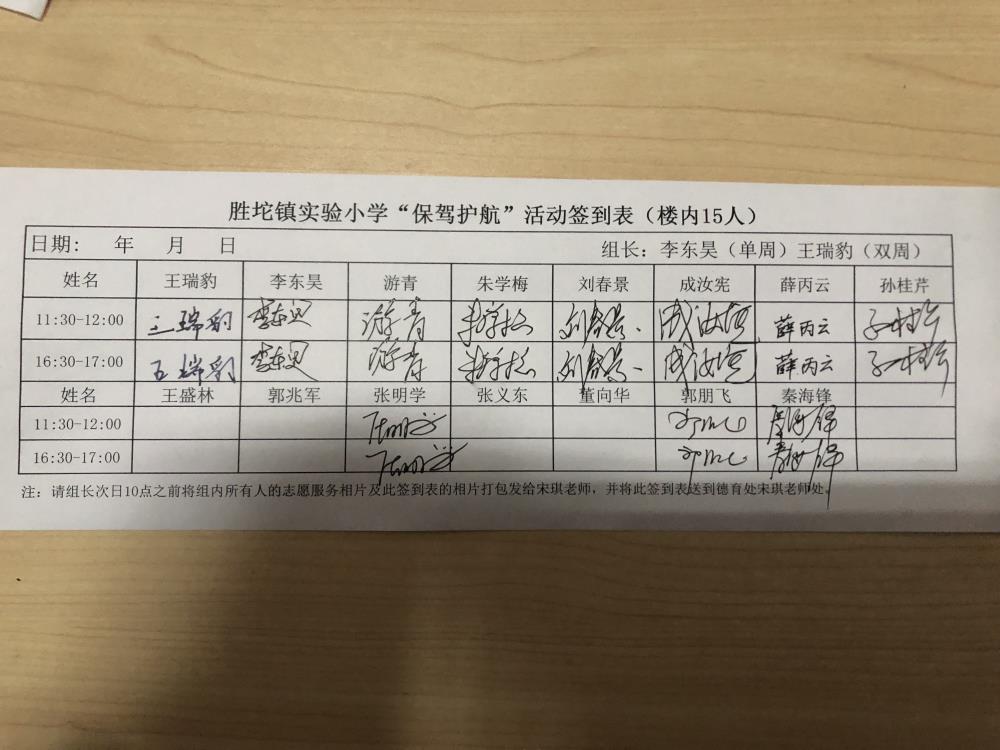 胜坨镇实验小学“保驾护航”活动签到表（楼内15人）
日期： 年 月 日 组长：李东昊（单周）王瑞豹（双周）
姓名 王瑞豹 李东昊 游青 朱学梅 刘春景 成汝宪 薛丙云 孙桂芹
11:30-12:00 王瑞豹 李东昊 游青 朱学梅 刘春景 成汝宪 薛丙云 孙桂芹
16:30-17:00 王瑞豹 李东昊 游青 朱学梅 刘春景 成汝宪 薛丙云 孙桂芹
姓名 王盛林 郭兆军 张明学 张义东 董向华 郭朋飞 秦海锋
11:30-12:00 张明学 秦海锋
16:30-17:00 张明学 秦海锋
注：请组长次日10点之前将组内所有人的志愿服务相片及此签到表的相片打包发给宋琪老师，并将此签到表送到德育处宋琪老师处。